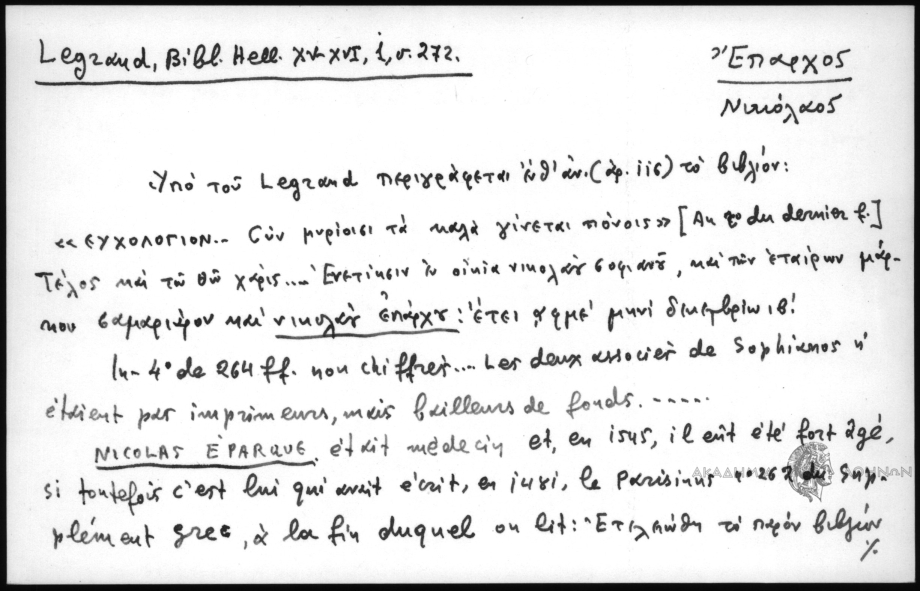 Legrand, Bibl. Hell. XV-XVI, 1, σ. 272.
Ἔπαρχος
Νικόλαος
Ὑπὸ τοῦ Legrand περιγράφεται ἔνθ' ἀν. (ἀρ. 116) τὸ βιβλίον:
«ΕΥΧΟΛΟΓΙΟΝ... Σὺν μυρίοισι τὰ καλὰ γίνεται πόνοις» [Au vo du dernier f.]
Τέλος καὶ τῶ θῶ χάρις.... Ἐνετίησιν ἐν οἰκία νικολάου σοφιανοῦ, καὶ τῶν ἑταίρων μάρ-
κου σαμαριάρου καὶ νικολάου ἐπάρχου: ἔτει ͵αφμε΄ μηνὶ δεκεμβρίω ιβ΄.
In-4° de 264 ff. non chiffrés.... Les deux associés de Sophianos n'
étaient pas imprimeurs, mais bailleurs de fonds. .....
NICOLAS ÉPARQUE était médecin et, en 1545, il eût été fort âgé,
si toutefois c'est lui qui avait écrit, en 1481, le Parisinus no 262 du Sup-
plément grec, à la fin duquel on lit: Ἐτελειώθη τὸ παρὸν βιβλίον
%
ΑΚΑΔΗΜΙΑ ΑΘΗΝΩΝ